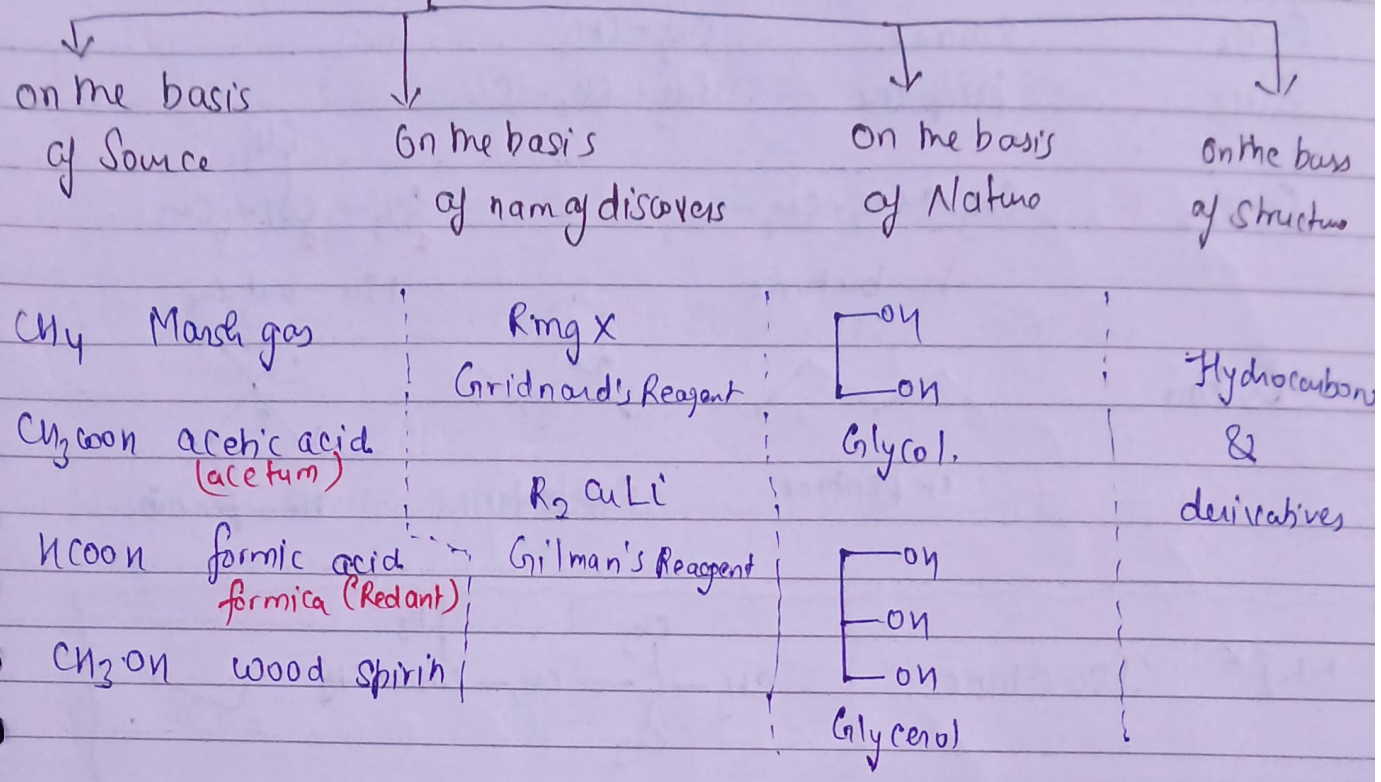 on the basis
of Source
on the basis
of nam of discovers
on the basis
of Nature
on the basis
of structure
CH4 Marsh gas
CH3COOH acetic acid
(acetum)
HCOOH formic acid
formica (Red ant)
CH3OH wood spirit
RMgX
Gridnard's Reagent
R2CuLi
Gilman's Reagent
OH
OH
Glycol.
OH
OH
OH
Glycerol
Hydrocarbon
&
derivatives